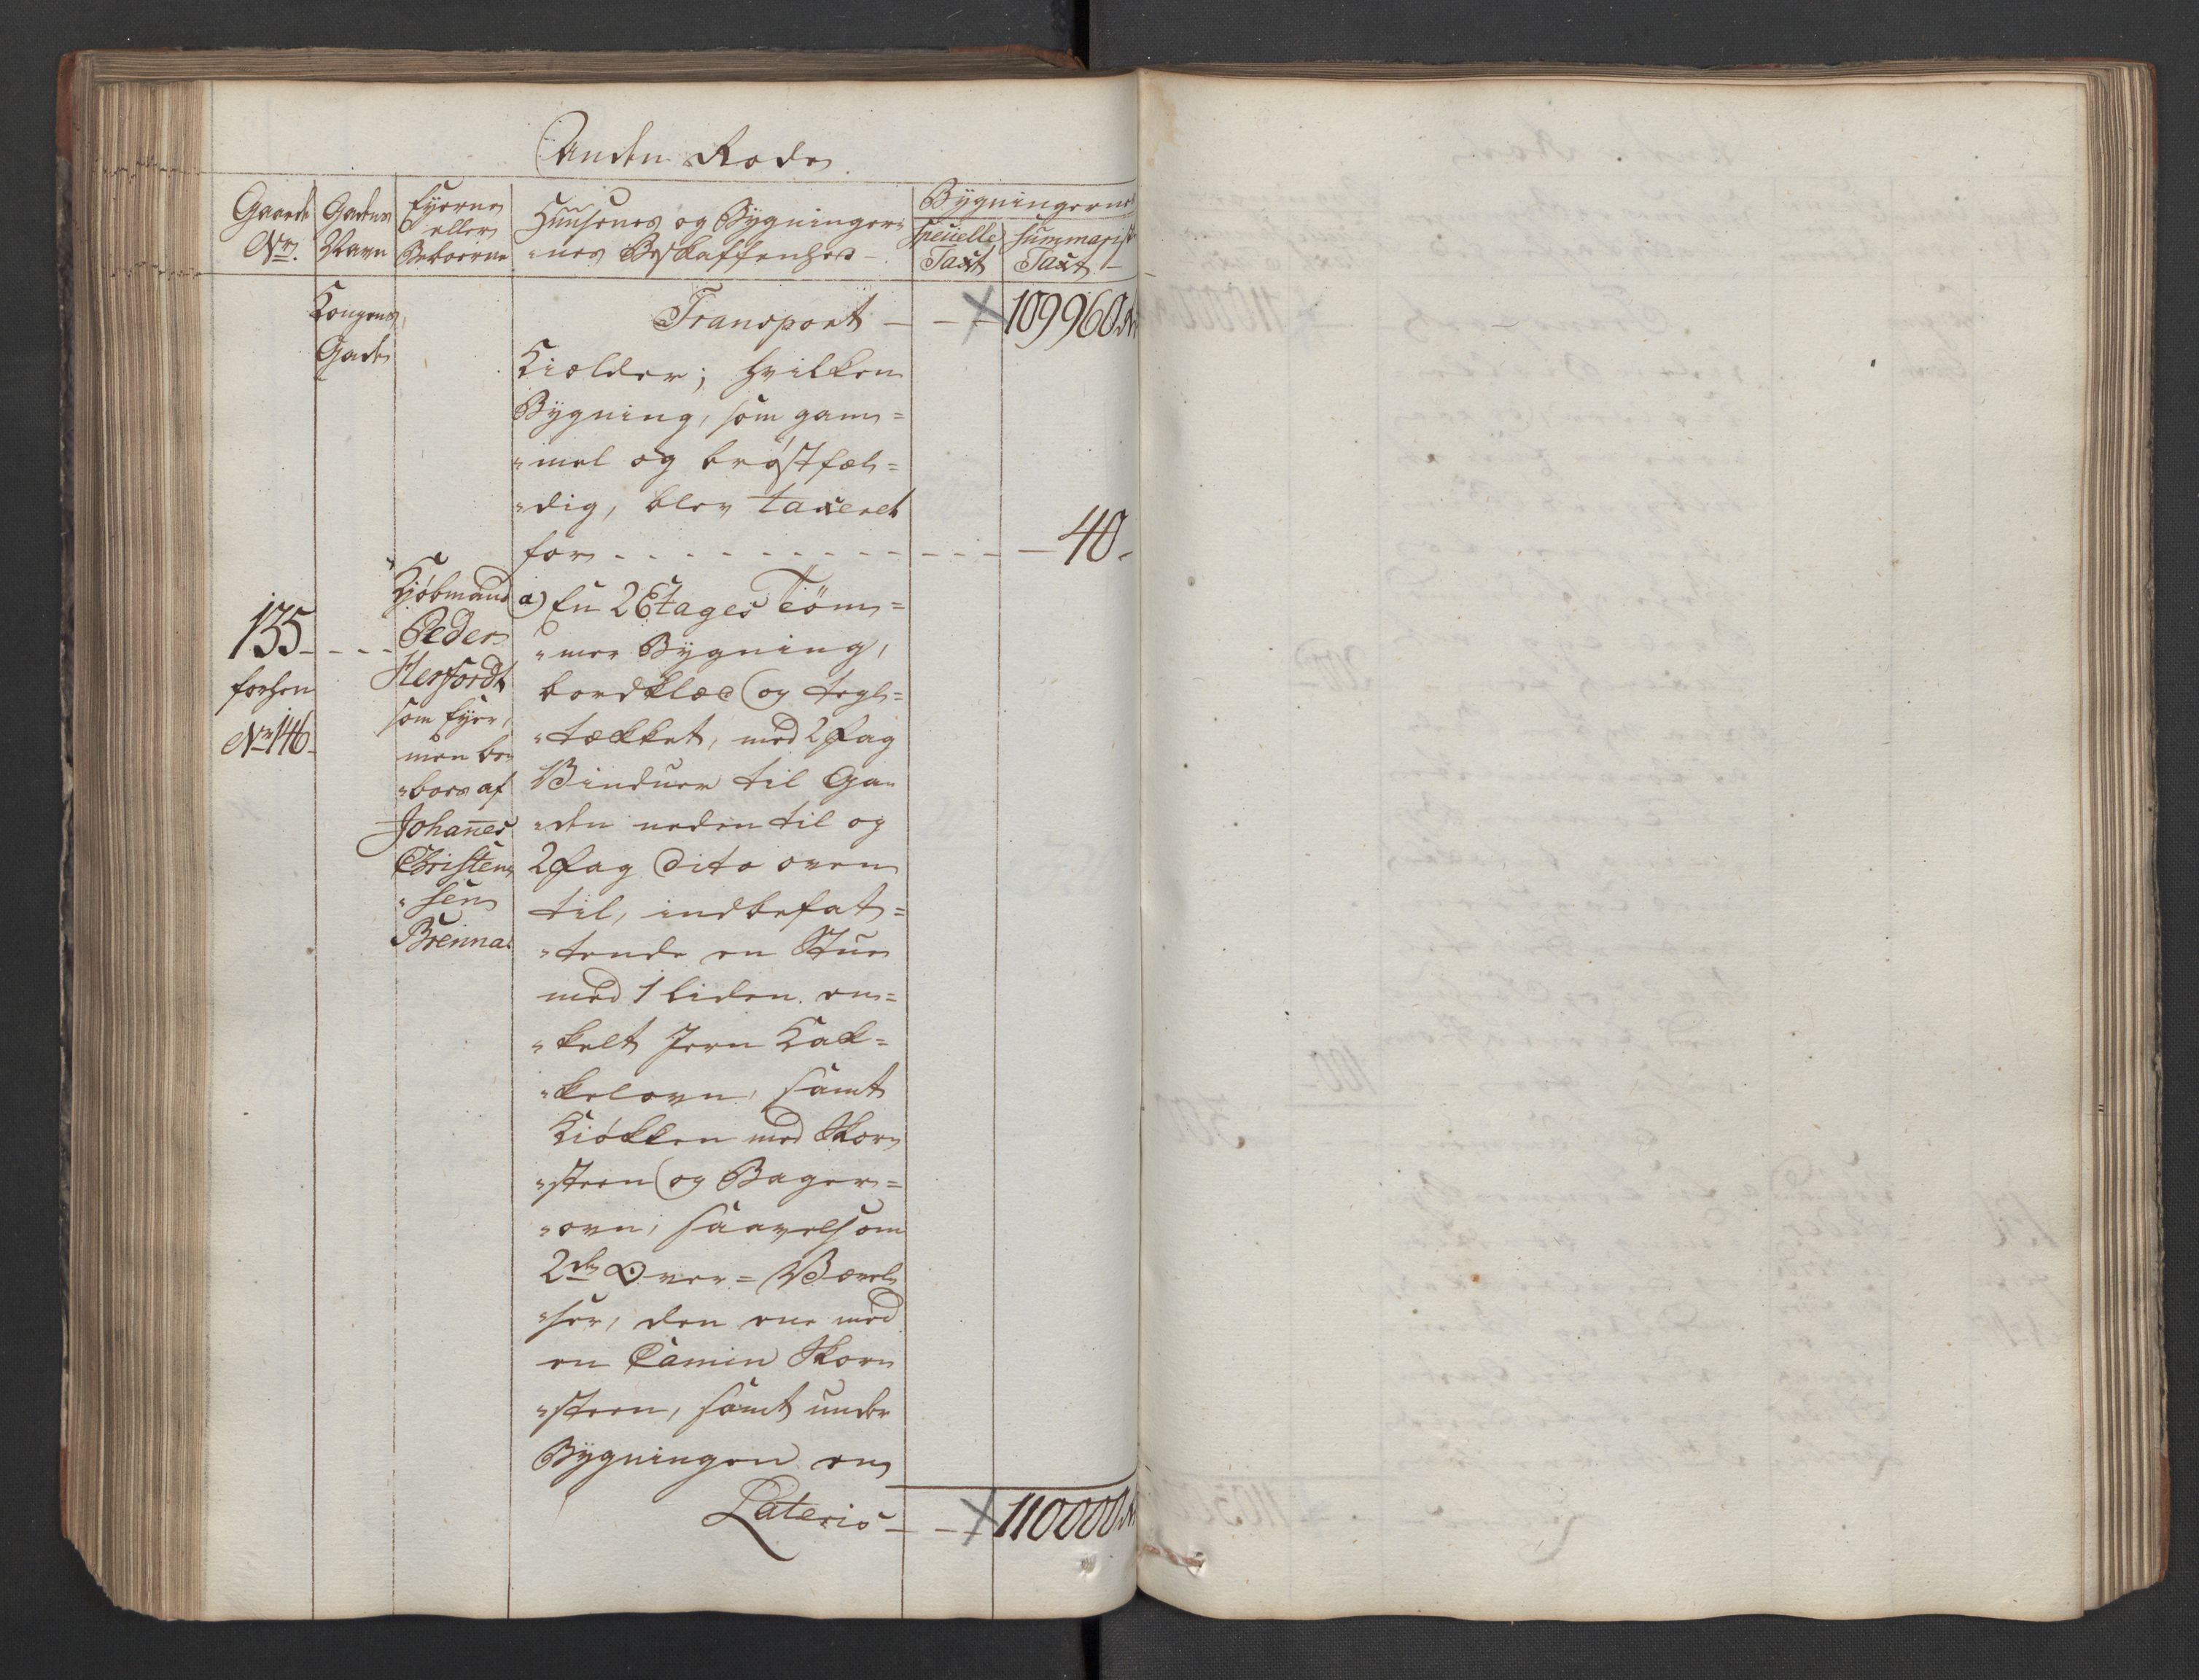 Anden Rode
Gaards No. | Gadens Navn | Eyerne eller Beboerne | Huusenes og Bygninger-nes Beskaffenhed | Bygningernes specielle Taxt | summarisk Taxt
Kongens
Gade
Transport - - - 109960
Kielder; hvilken
Bygning, som gam=
"mel og brøstfæl=
"dig, blev taxeret
for - - - - - 40.
135
forhen
No 146.
Kjøbmand
Peder
Herfordt
som Eyer,
men be-
"boes af
Johannes
Christen-
"sen
Brenna.
a) En 2 Etages Töm=
"mer Bygning,
bordklæd og tegl=
"tækket, med 2 Fag
Vinduer til Ga-
"den neden til og
2 Fag dito oven
til, indbefat=
"tende en Stue
med 1 liden en=
"kelt Jern Kak=
"kelovn, samt
Kiökken med Skor-
"steen og Bager=
"ovn; saavelsom
2de Over=Værel-
"ser, den ene med
en Camin Skor-
"steen, samt under
Bygningen en
Lateris - - 110000